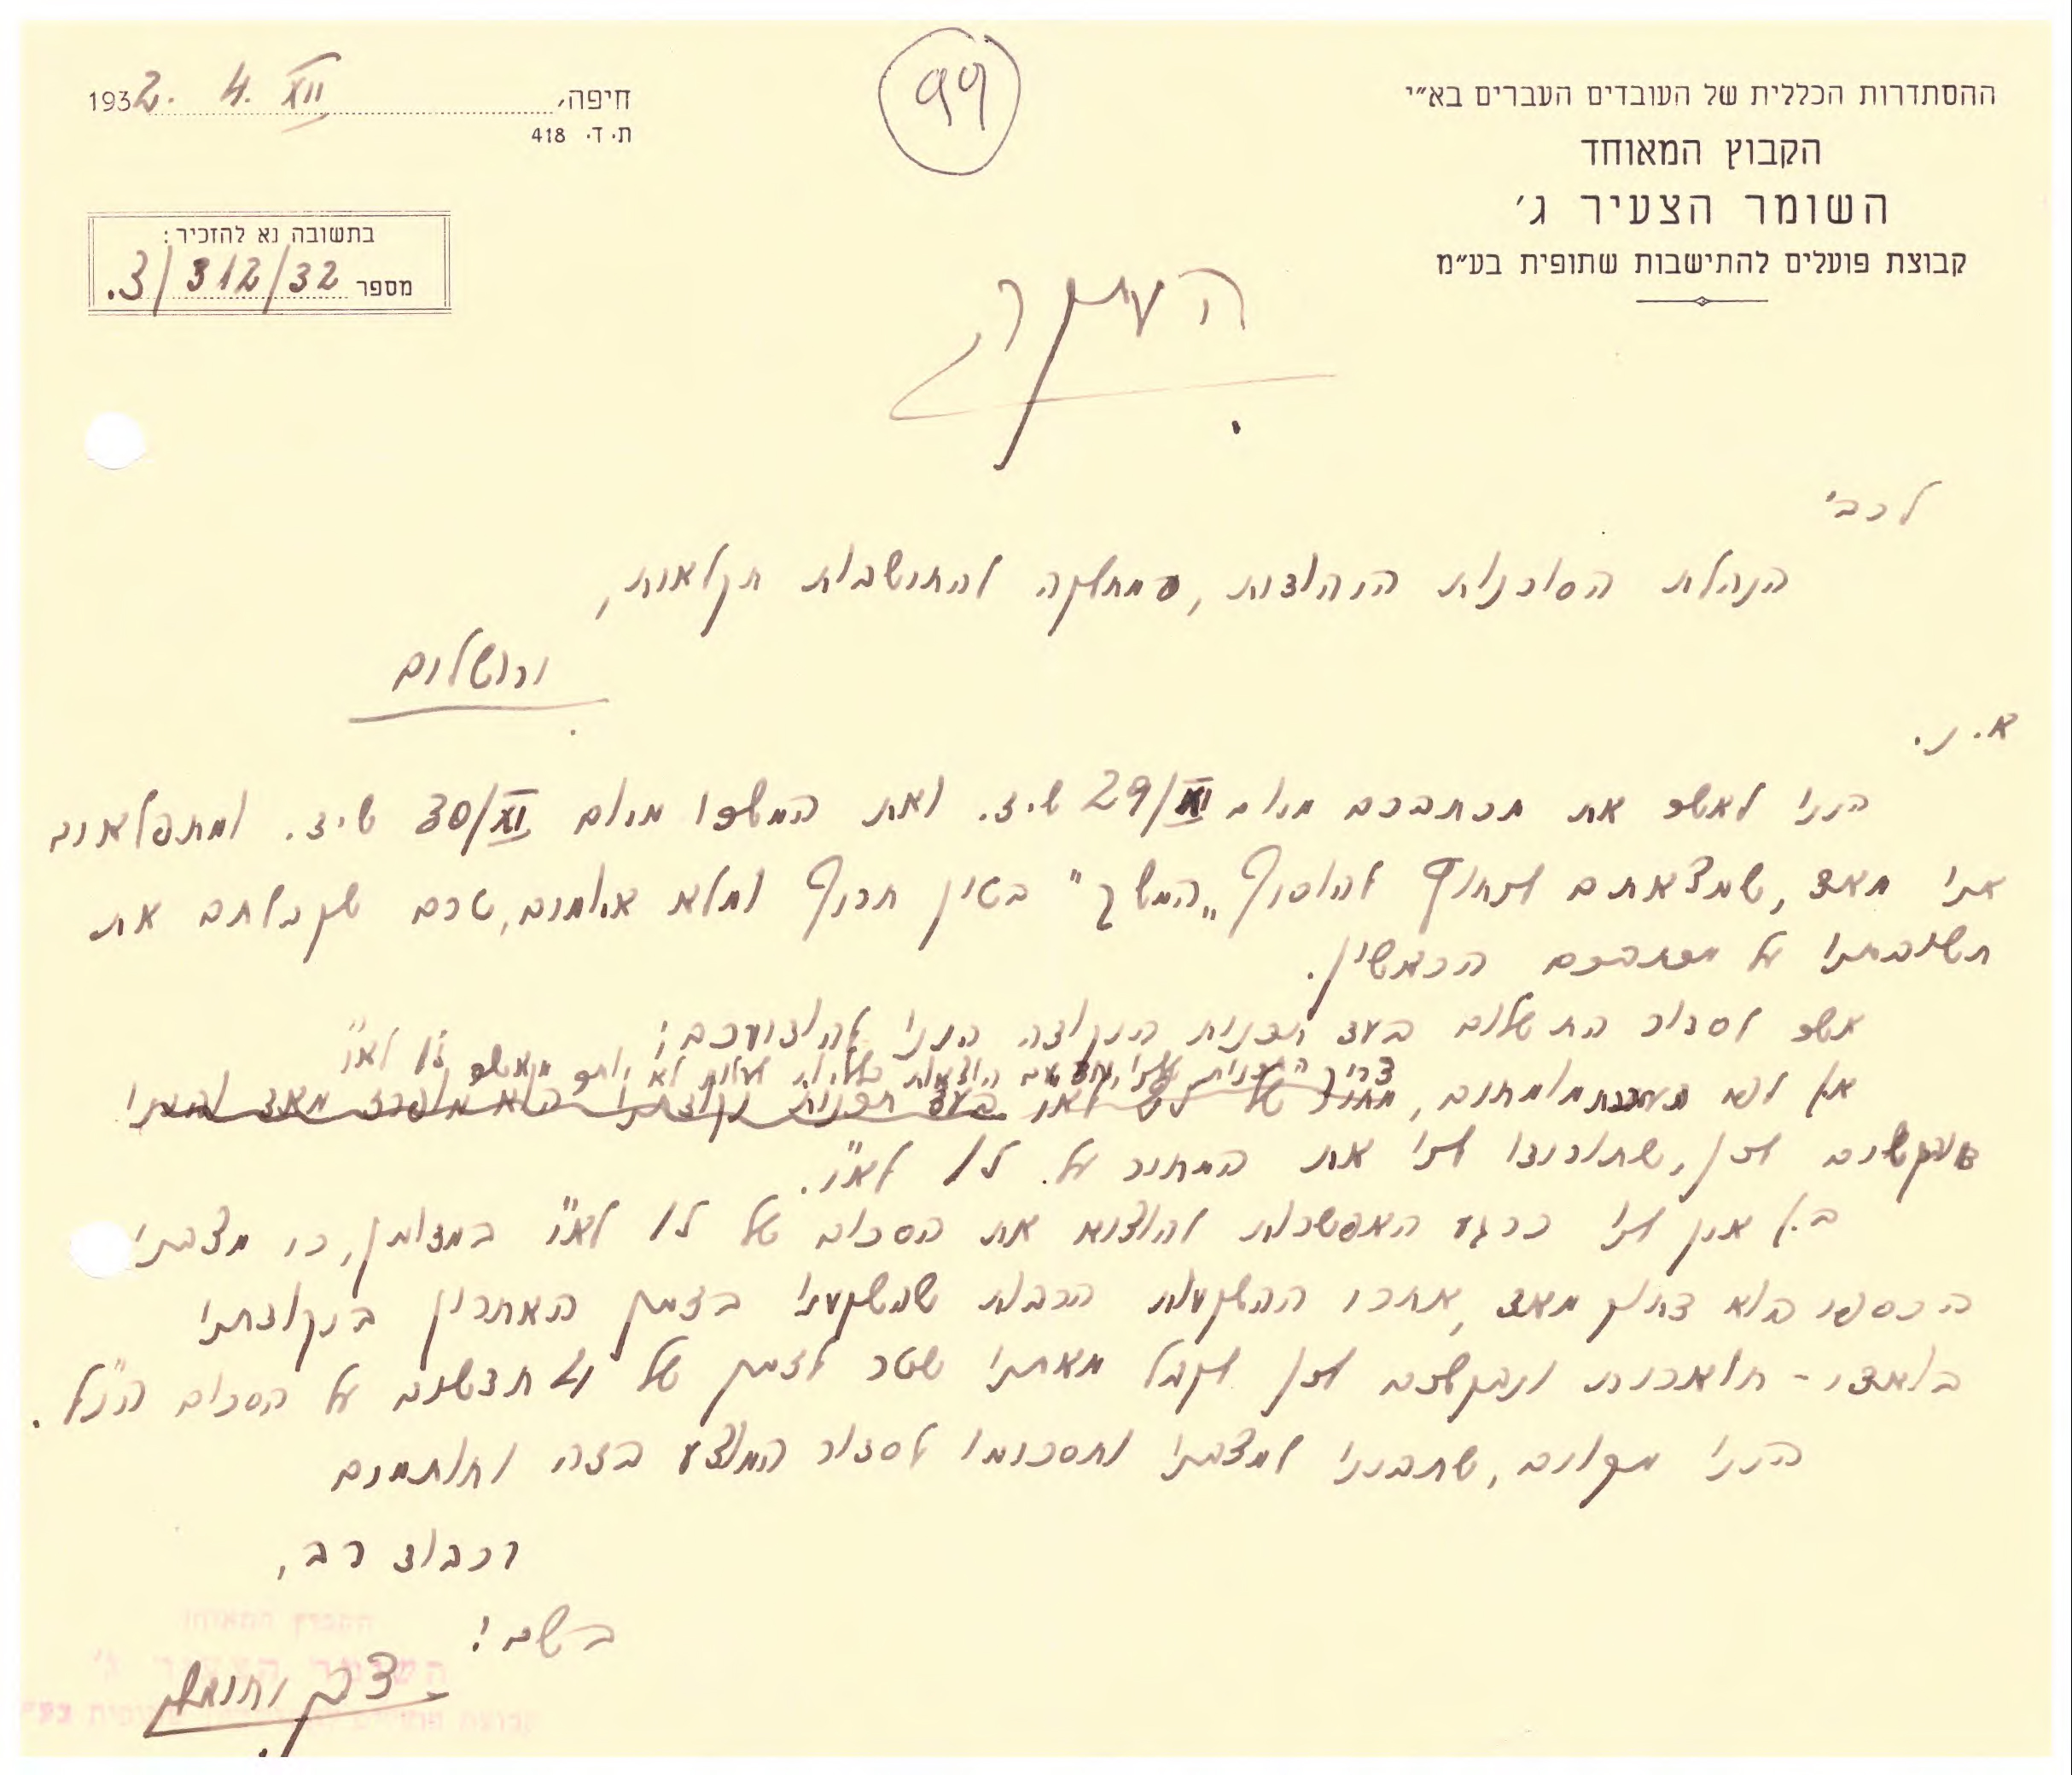 ההסתדרות הכללית של העובדים העברים בא״י
הקבוץ המאוחד
השומר הצעיר ג׳
קבוצת פועלים להתישבות שתופית בע״מ
99
חיפה, 4. XII 1932.
ת. ד. 418
בתשובה נא להזכיר:
מספר 312/32/3.
העתקה
לכב'
הנהלת הסוכנות היהודית, המחלקה להתישבות חקלאית,
ירושלים
א. נ.
הננו לאשר את מכתבכם מיום 29/XI ש.ז. ואת המשכו מיום 30/XI ש.ז. ומתפלאים
אנו מאד, שמצאתם לנחוץ להוסיף „המשך" בטון חריף ומלא איומים, טרם שקבלתם את
תשובתנו על מכתבכם הראשון.
אשר לסדור התשלום בעד תכנית הנקודה הננו להודיעכם:
א) לפי הערכת מומחים, צריך
מבקשים לכן, שתורידו לנו את המחיר על 10 לא"י.
ב.) אין לנו כרגע האפשרות להוציא את הסכום של 10 לא"י במזומן, כי מצבנו
הכספי הוא דחוק מאד, אחרי ההשקעות הרבות שהשקענו בזמן האחרון בנקודתנו
בואדי-חוארית ונבקשכם לכן לקבל מאתנו שטר לזמן של 4 חדשים על הסכום הנ"ל.
הננו מקוים, שתבינו למצבנו ותסכימו לסדור המוצע בזה וחותמים
בכבוד רב,
בשם:
הקבוץ המאוחד
השומר הצעיר ג׳
קבוצת פועלים להתישבות שתופית בע״מ